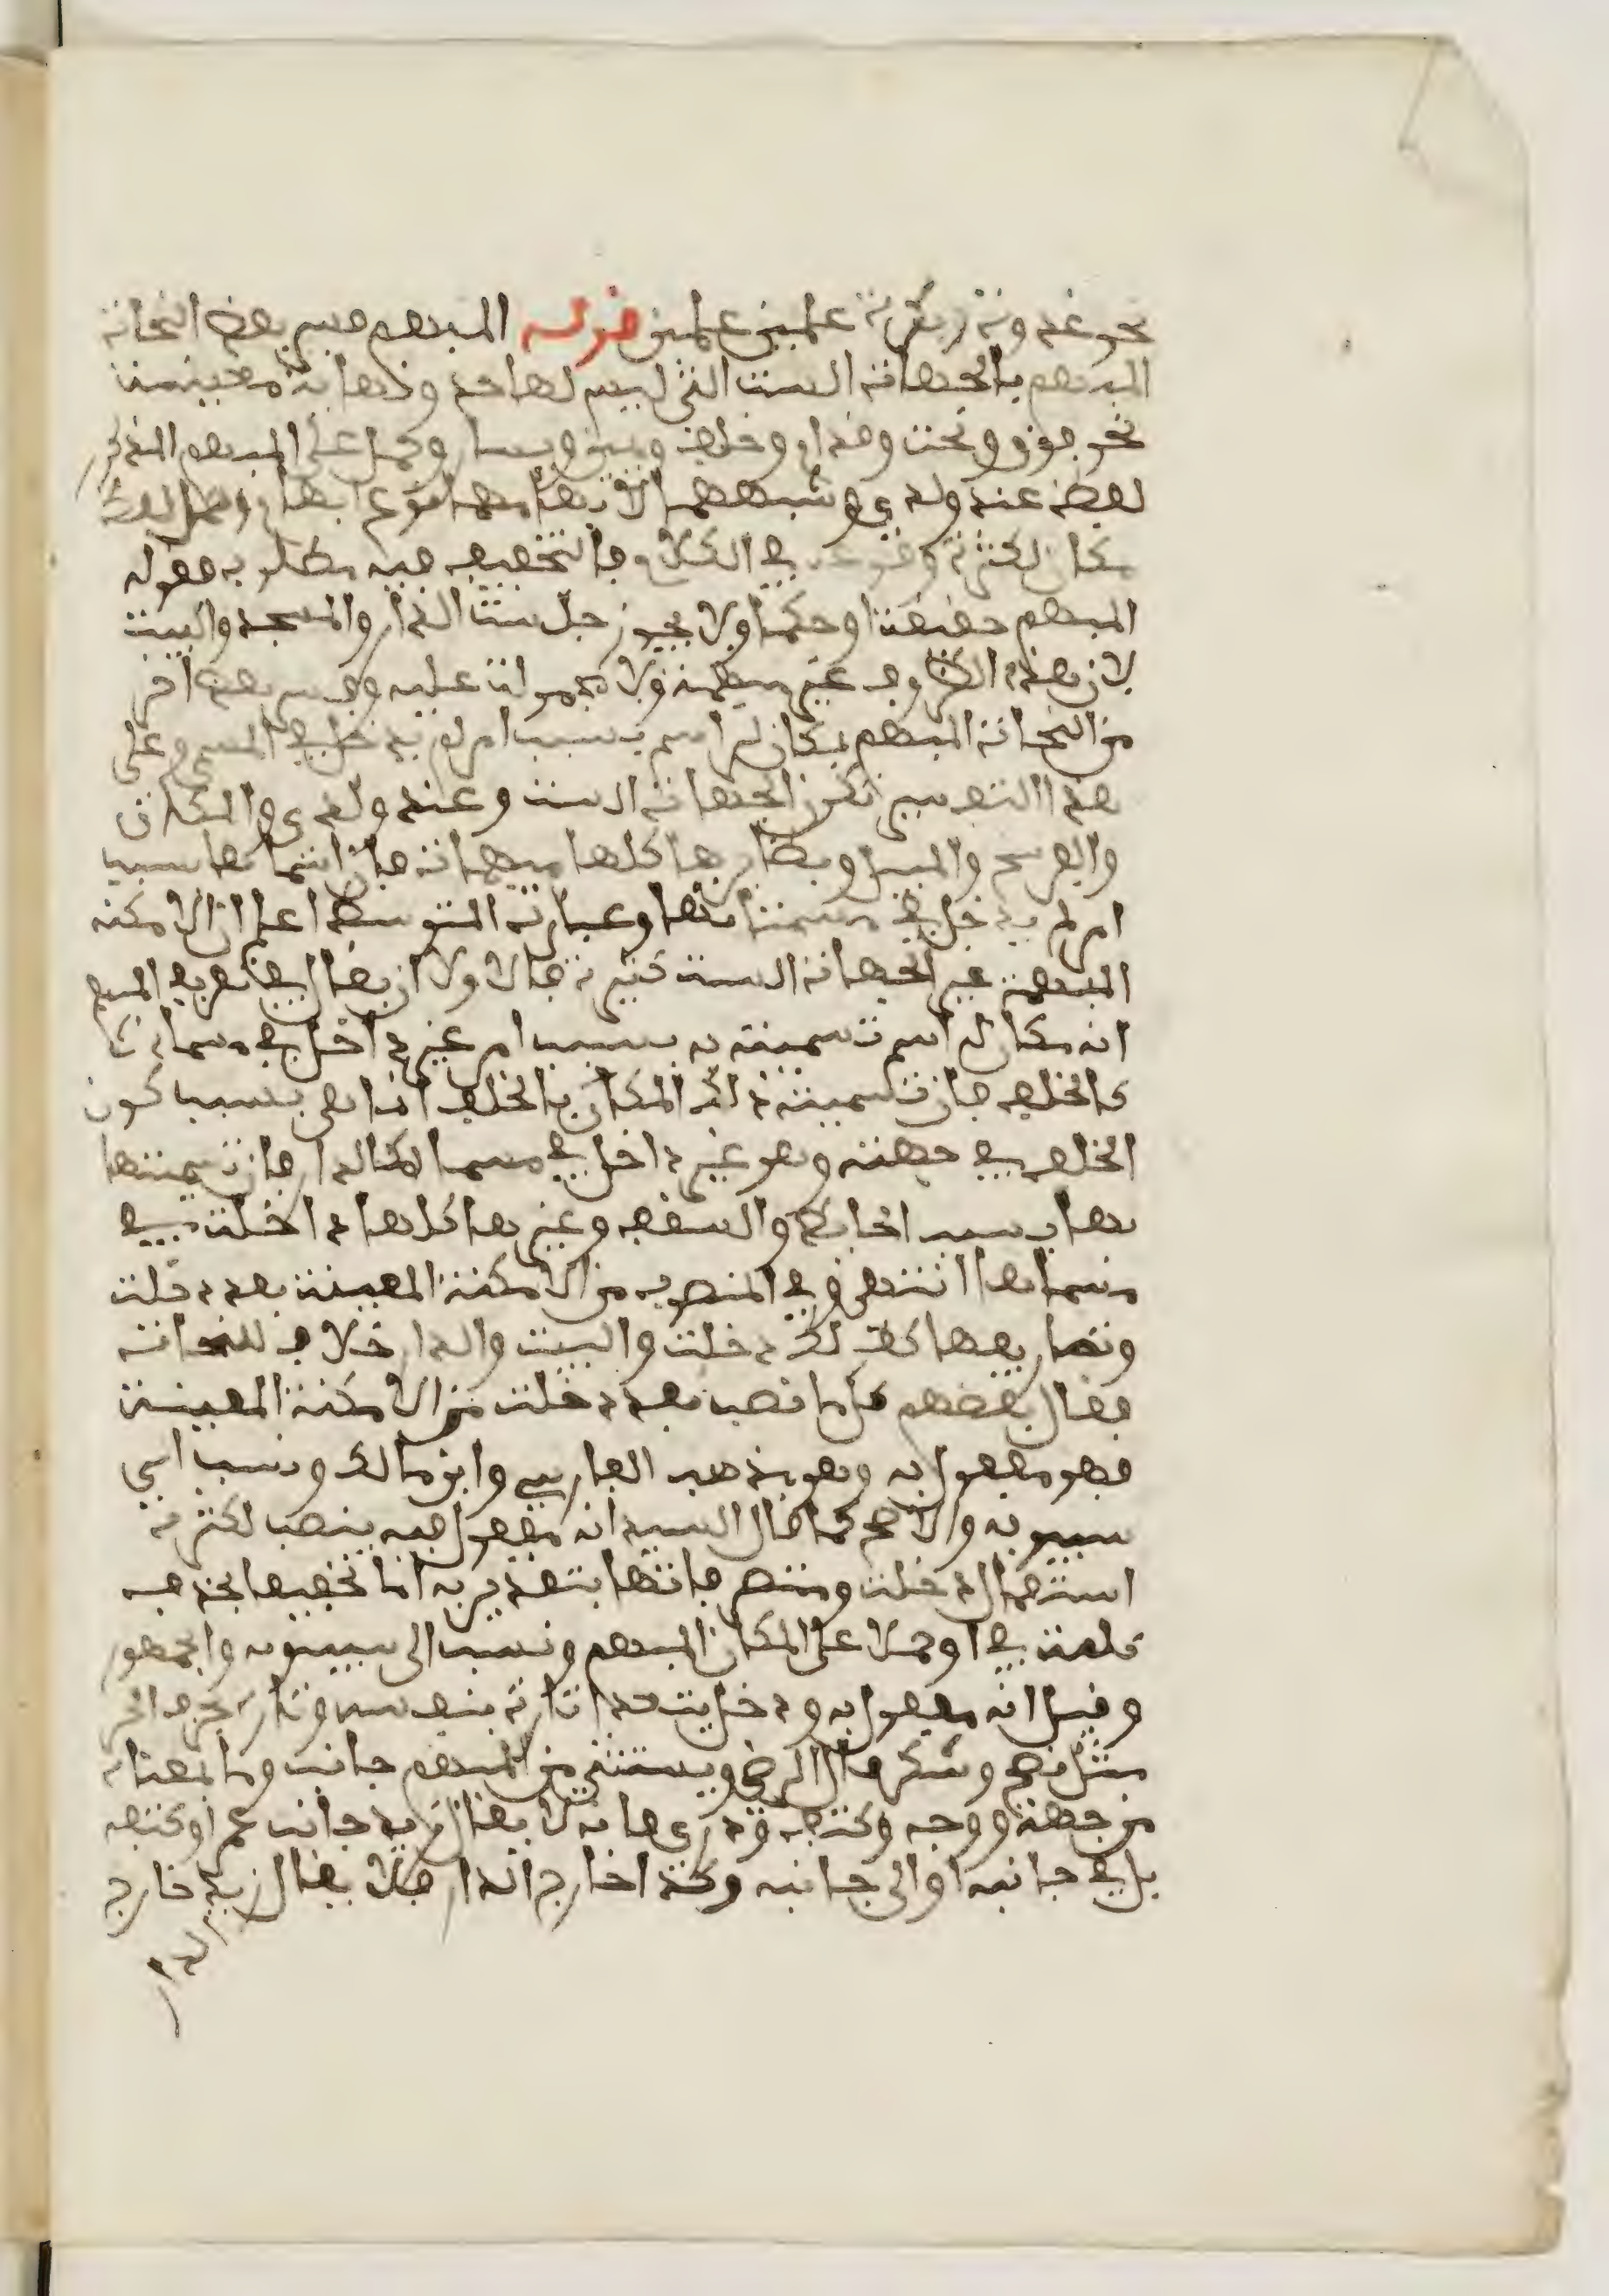 نحو غدوة وبكرة علمين علمين قوله المبهم فسر بعض النحاة
المبهم بالجهات الست التي ليس لها حد ونهاية معينة
نحو فوق وتحت وقدام وخلف ويمين ويسار وحمل على المبهم المذكور
لفظ عند ولدى وشبههما لابهامهما نوع ابهام وحمل لفظ
مكان لكثرة وقوعه في الكلام فالتخفيف فيه مطلوب فقوله
المبهم حقيقة او حكما ولا يجوز جلست الدار والمسجد والبيت
لان هذه الظروف غير مبهمة ولا محمولة عليه وفسر بعض اخر
من النحاة المبهم بمكان له اسم بسبب امر لم يدخل في المسمى وعلى
هذا التفسير تكون الجهات الست وعند ولدى والمكان
والفرسخ والميل ونظائرها كلها مبهمات فان اسماءها بسبب
امر لم يدخل في مسمياتها وعبارة المتوسط اعلم ان الامكنة
المبهمة غير الجهات الست كثيرة فالاولى ان يقال في تعريف المبهم
انه مكان له اسم تسميته به بسبب امر غير داخل في مسماه
كالخلف فان تسمية ذلك المكان بالخلف انما هي بسبب كون
الخلف في جهته وهو غير داخل في مسماه كالدار فان تسميتها
بها بسبب الحائط والسقف وغيرها كلها داخلة في
مسماها انتهى والمنصوب من الامكنة المعينة بعد دخلت
ونصا ريفها كذلك دخلت والبيت والدار خلاف للنحاة
فقال بعضهم كلما نصب بعد دخلت من الامكنة المعينة
فهو مفعول به وهو مذهب الفارسي وابن مالك ونسب الى
سيبويه والاصح كما قال السيد انه مفعول فيه ينصب لكثرة
استعمال دخلت ومتصرفاتها بتقدير به اما تخفيفا بحذف
كلمة في او حملا على المكان المبهم ونسب الى سيبويه والجمهور
وقيل انه مفعول به ودخل يتعدى تارة بنفسه وتارة بحرف الجر
مثل نصح وشكر قال الرضي ويستثنى من المبهم جانب وما بمعناه
من جهة ووجه وكنف وذرى فانه لا يقال زيد جانب عمرو وكنفه
بل في جانبه او الى جانبه وكذا خارج الدار فلا يقال زيد خارج
الدار